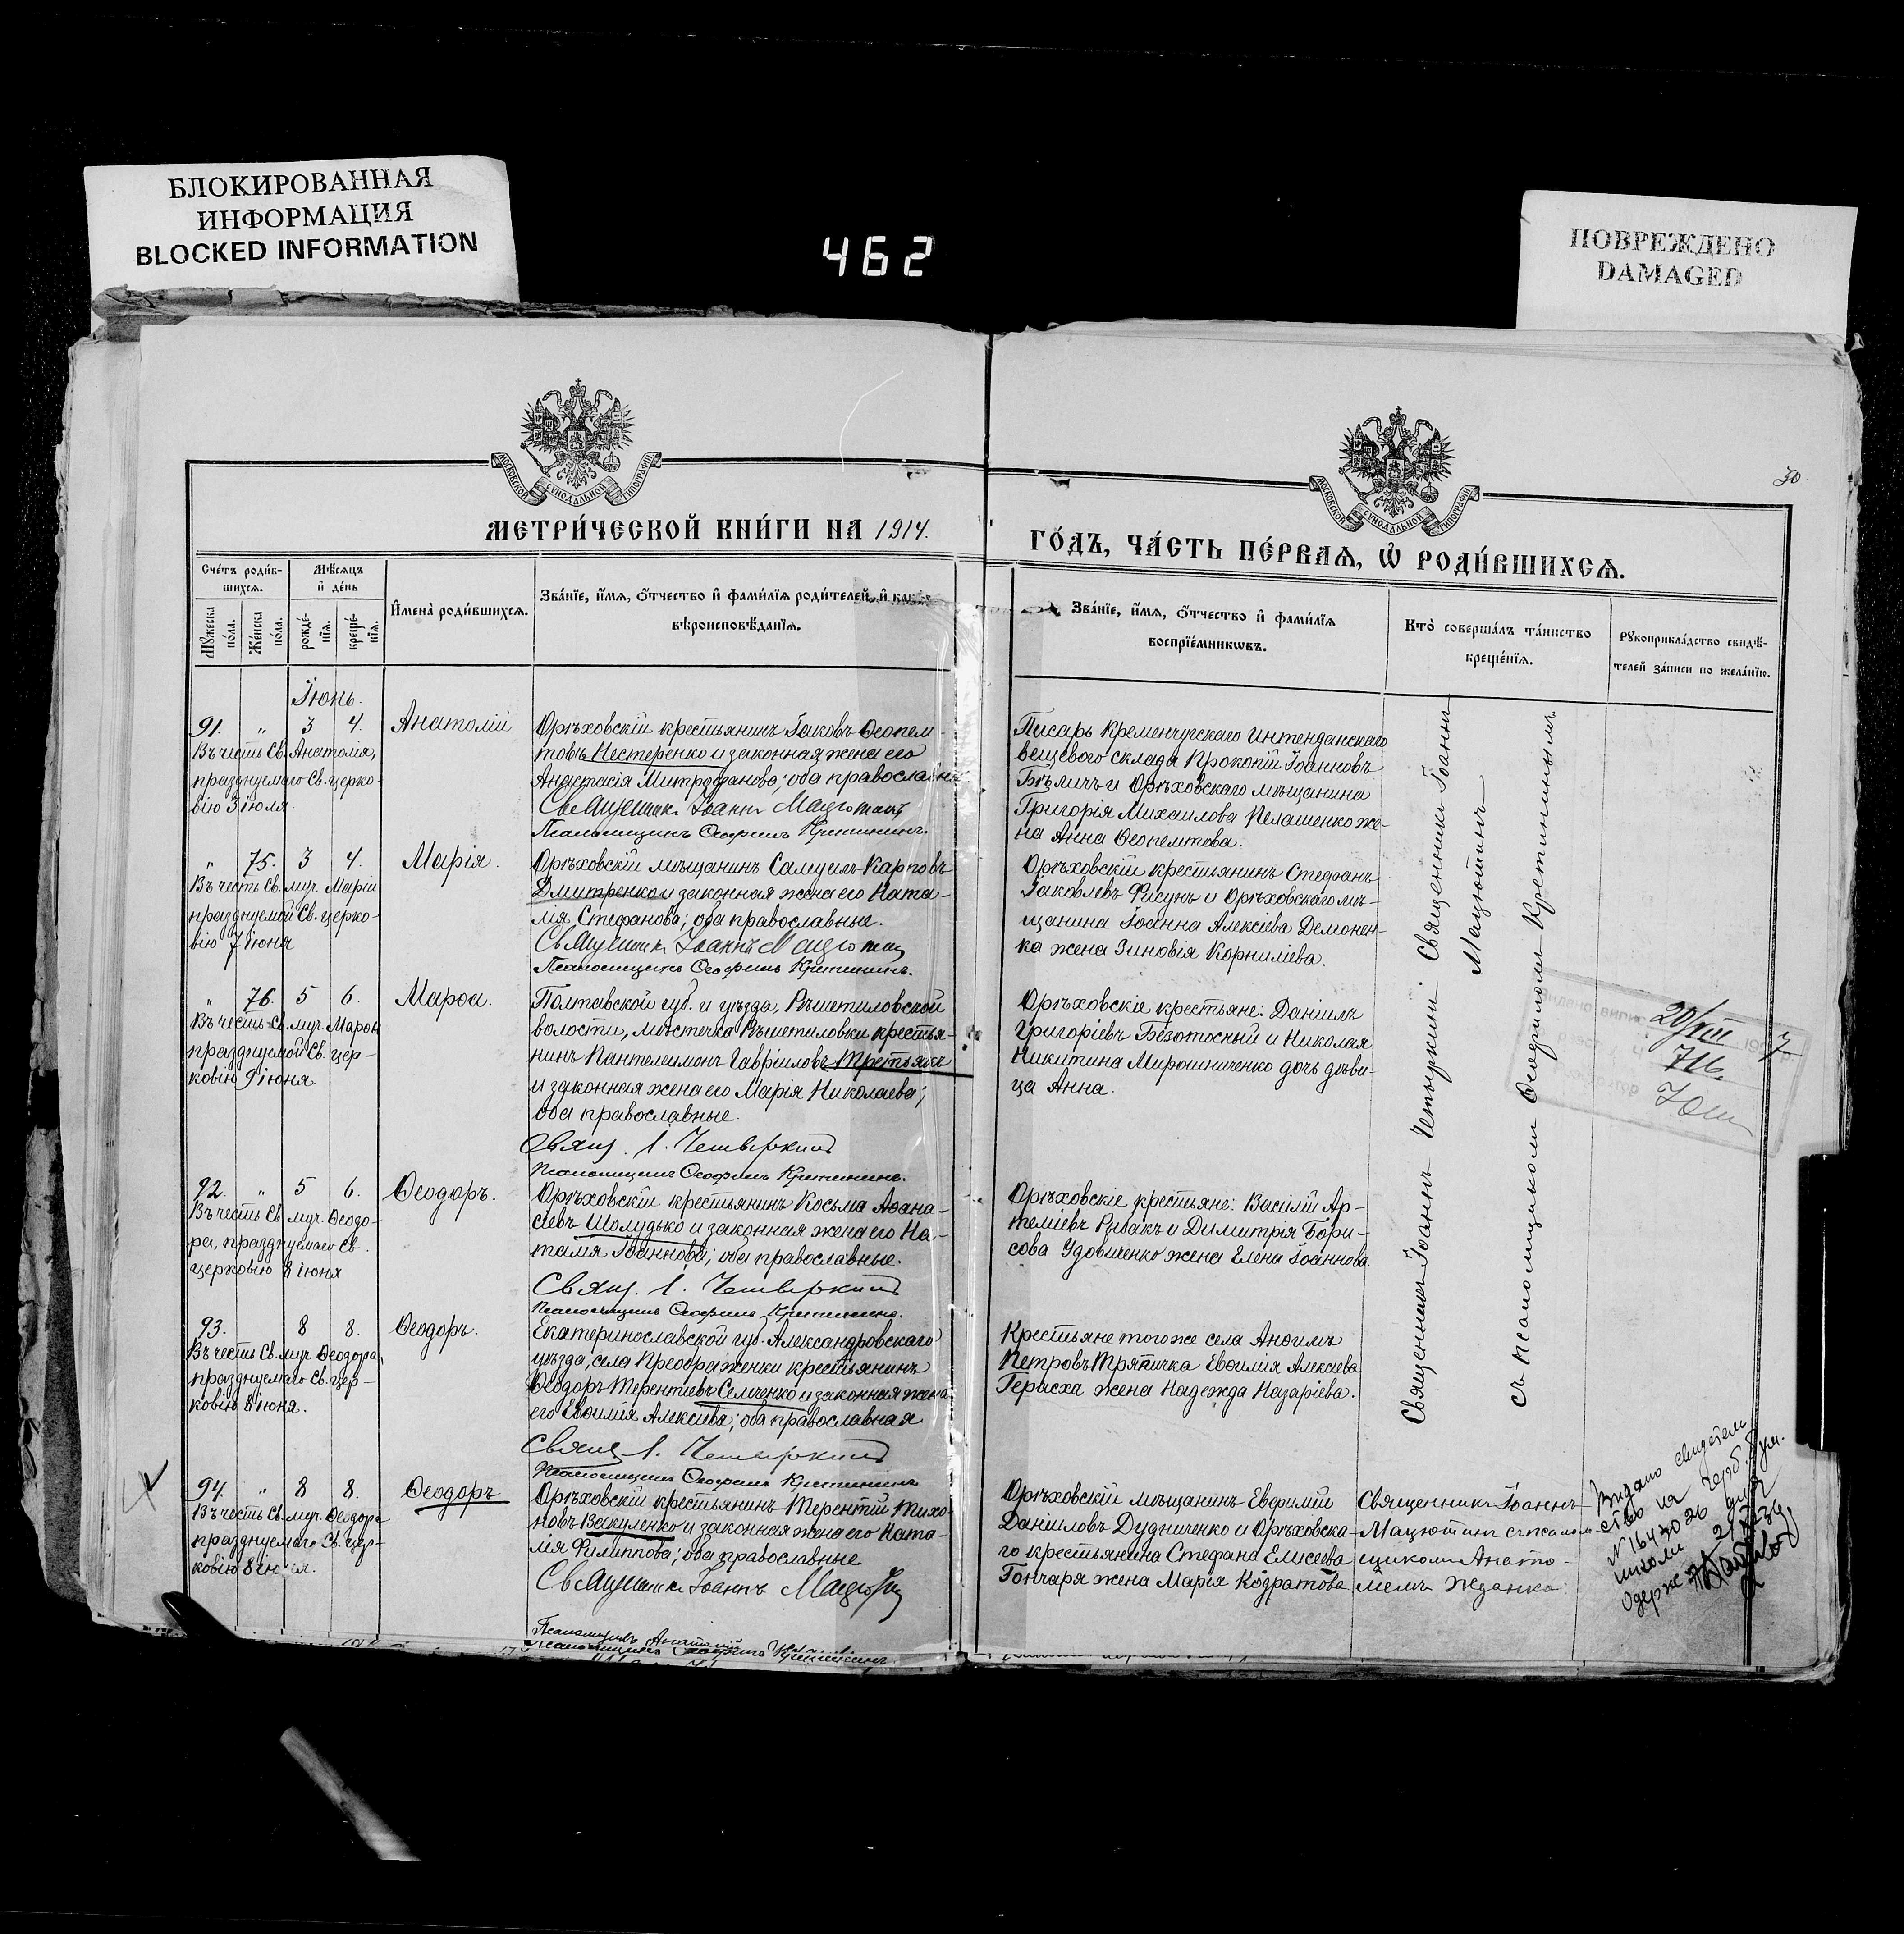 БЛОКИРОВАННАЯ
ИНФОРМАЦИЯ
BLOCKED INFORMATION
462
ПОВРЕЖДЕНО
DAMAGED
30.
МОСКОВСКОЙ СѴНОДАЛЬНОЙ ТИПОГРАФІИ
МОСКОВСКОЙ СѴНОДАЛЬНОЙ ТИПОГРАФІИ
МЕТРИ́ЧЕСКОЙ КНИ́ГИ НА 1914.
ГО́ДЪ, ЧА́СТЬ ПЕ́РВАѦ, Ѽ РОДИ́ВШИХСѦ.
Сче́тъ роди́в-
шихсѧ.
Мꙋжеска
по́ла.
Же́нска
по́ла.
Мѣ́сѧцъ
и҆ де́нь
рожде́-
нїѧ.
креще́-
нїѧ.
И҆мена̀ роди́вшихсѧ.
Зва́нїе, и҆́мѧ, ѻ҆́тчество и҆ фами́лїѧ роди́телей, и҆
вѣроисповѣ́данїѧ.
Зва́нїе, и҆́мѧ, ѻ҆́тчество и҆ фами́лїѧ
воспрїе́мникѡвъ.
Кто̀ соверша́лъ та́инство
креще́нїѧ.
Рꙋкоприкла́дство свидѣ́-
телей за́писи по жела́нїю.
Іюнь.
91. " 3 4. Анатолій
Въ честь Св. Анатолія,
празднуемаго Св. церко-
вію 3 іюля
Орѣховскій крестьянинъ Іаковъ Ѳеопем-
товъ Нестеренко и законная жена его
Анастасія Митрофанова; оба православн
Священникъ Іоаннъ Мацютинъ
Псаломщикъ Ѳеофилъ Кретининъ.
Писарь Кременчугскаго Интенданскаго
вещеваго склада Прокопій Іоанновъ
Бѣличъ и Орѣховскаго мѣщанина
Григорія Михаилова Пелашенко же-
на Анна Ѳеопемтова.
" 75. 3 4. Марія.
Въ честь Св. муч. Маріи
празднуемой Св. церко-
вію 7 іюня
Орѣховскій мѣщанинъ Самуилъ Карповъ
Дмитренко и законная жена его Ната-
лія Стефанова; оба православные.
Священникъ Іоаннъ Мацютинъ
Псаломщикъ Ѳеофилъ Кретининъ.
Орѣховскій крестьянинъ Стефанъ
Іаковлевъ Фисунъ и Орѣховскаго мѣ-
щанина Іоанна Алексіева Демонен-
ка жена Зиновія Корниліева.
" 76. 5 6. Марѳа.
Въ честь Св. муч. Марѳы
празднуемой Св. цер-
ковію 9 іюня
Полтавской губ. и уѣзда, Рѣшетиловской
волости, мѣстечка Рѣшетиловки крестья-
нинъ Пантелеимонъ Гавріиловъ Третьякъ
и законная жена его Марія Николаева;
оба православные.
Свящ. І. Четыркинъ
Псаломщикъ Ѳеофилъ Кретининъ.
Орѣховскіе крестьяне: Даніилъ
Григоріевъ Безотосный и Николая
Никитина Мирошниченко дочь дѣви-
ца Анна.
20/VIII
716.
92. " 5 6. Ѳеодоръ.
Въ честь Св. муч. Ѳеодо-
ра, празднуемаго Св.
церковію 8 іюня
Орѣховскій крестьянинъ Косьма Аѳана-
сіевъ Шолудько и законная жена его На-
талія Іоаннова; оба православные.
Свящ. І. Четыркинъ
Псаломщикъ Ѳеофилъ Кретининъ.
Орѣховскіе крестьяне: Василій Ар-
теміевъ Рибакъ и Димитрія Бори-
сова Удовиченко жена Елена Іоаннова.
93. 8 8. Ѳеодоръ.
Въ честь Св. муч. Ѳеодора,
празднуемаго Св. цер-
ковію 8 іюня.
Екатеринославской губ. Александровскаго
уѣзда, села Преображенки крестьянинъ
Ѳеодоръ Терентіевъ Семченко и законная жена
его Евѳимія Алексіева; оба православная
Свящ. І. Четыркинъ
Псаломщикъ Ѳеофилъ Кретининъ
Крестьяне того же села Анѳимъ
Петровъ Тряпичка Евѳимія Алексіева
Гераcха жена Надежда Назаріева.
Священники: Іоаннъ Четыркинъ Священники Іоаннъ
Мацютинъ
съ псаломщикомъ Ѳеофиломъ Кретининымъ
94. " 8 8. Ѳеодоръ
Въ честь Св. муч. Ѳеодора
празднуемаго Св. цер-
ковію 8 іюня.
Орѣховскій крестьянинъ Терентій Тихо-
новъ Вакуленко и законная жена его Ната-
лія Филиппова; оба православные
Священникъ Іоаннъ Мацютинъ
Псаломщикъ Анатолій Жданко
Псаломщикъ Ѳеофилъ Кретининъ
Орѣховскій мѣщанинъ Евфимій
Даниловъ Дудниченко и Орѣховска-
го крестьянина Стефана Елисеева
Гончаря жена Марія Кодратова
Священникъ Іоаннъ
Мацютинъ съ псалом-
щикомъ Анато-
ліемъ Жданко
Видано свидетель
ство на герб. бум.
N 1643026 для
школи
Одержав